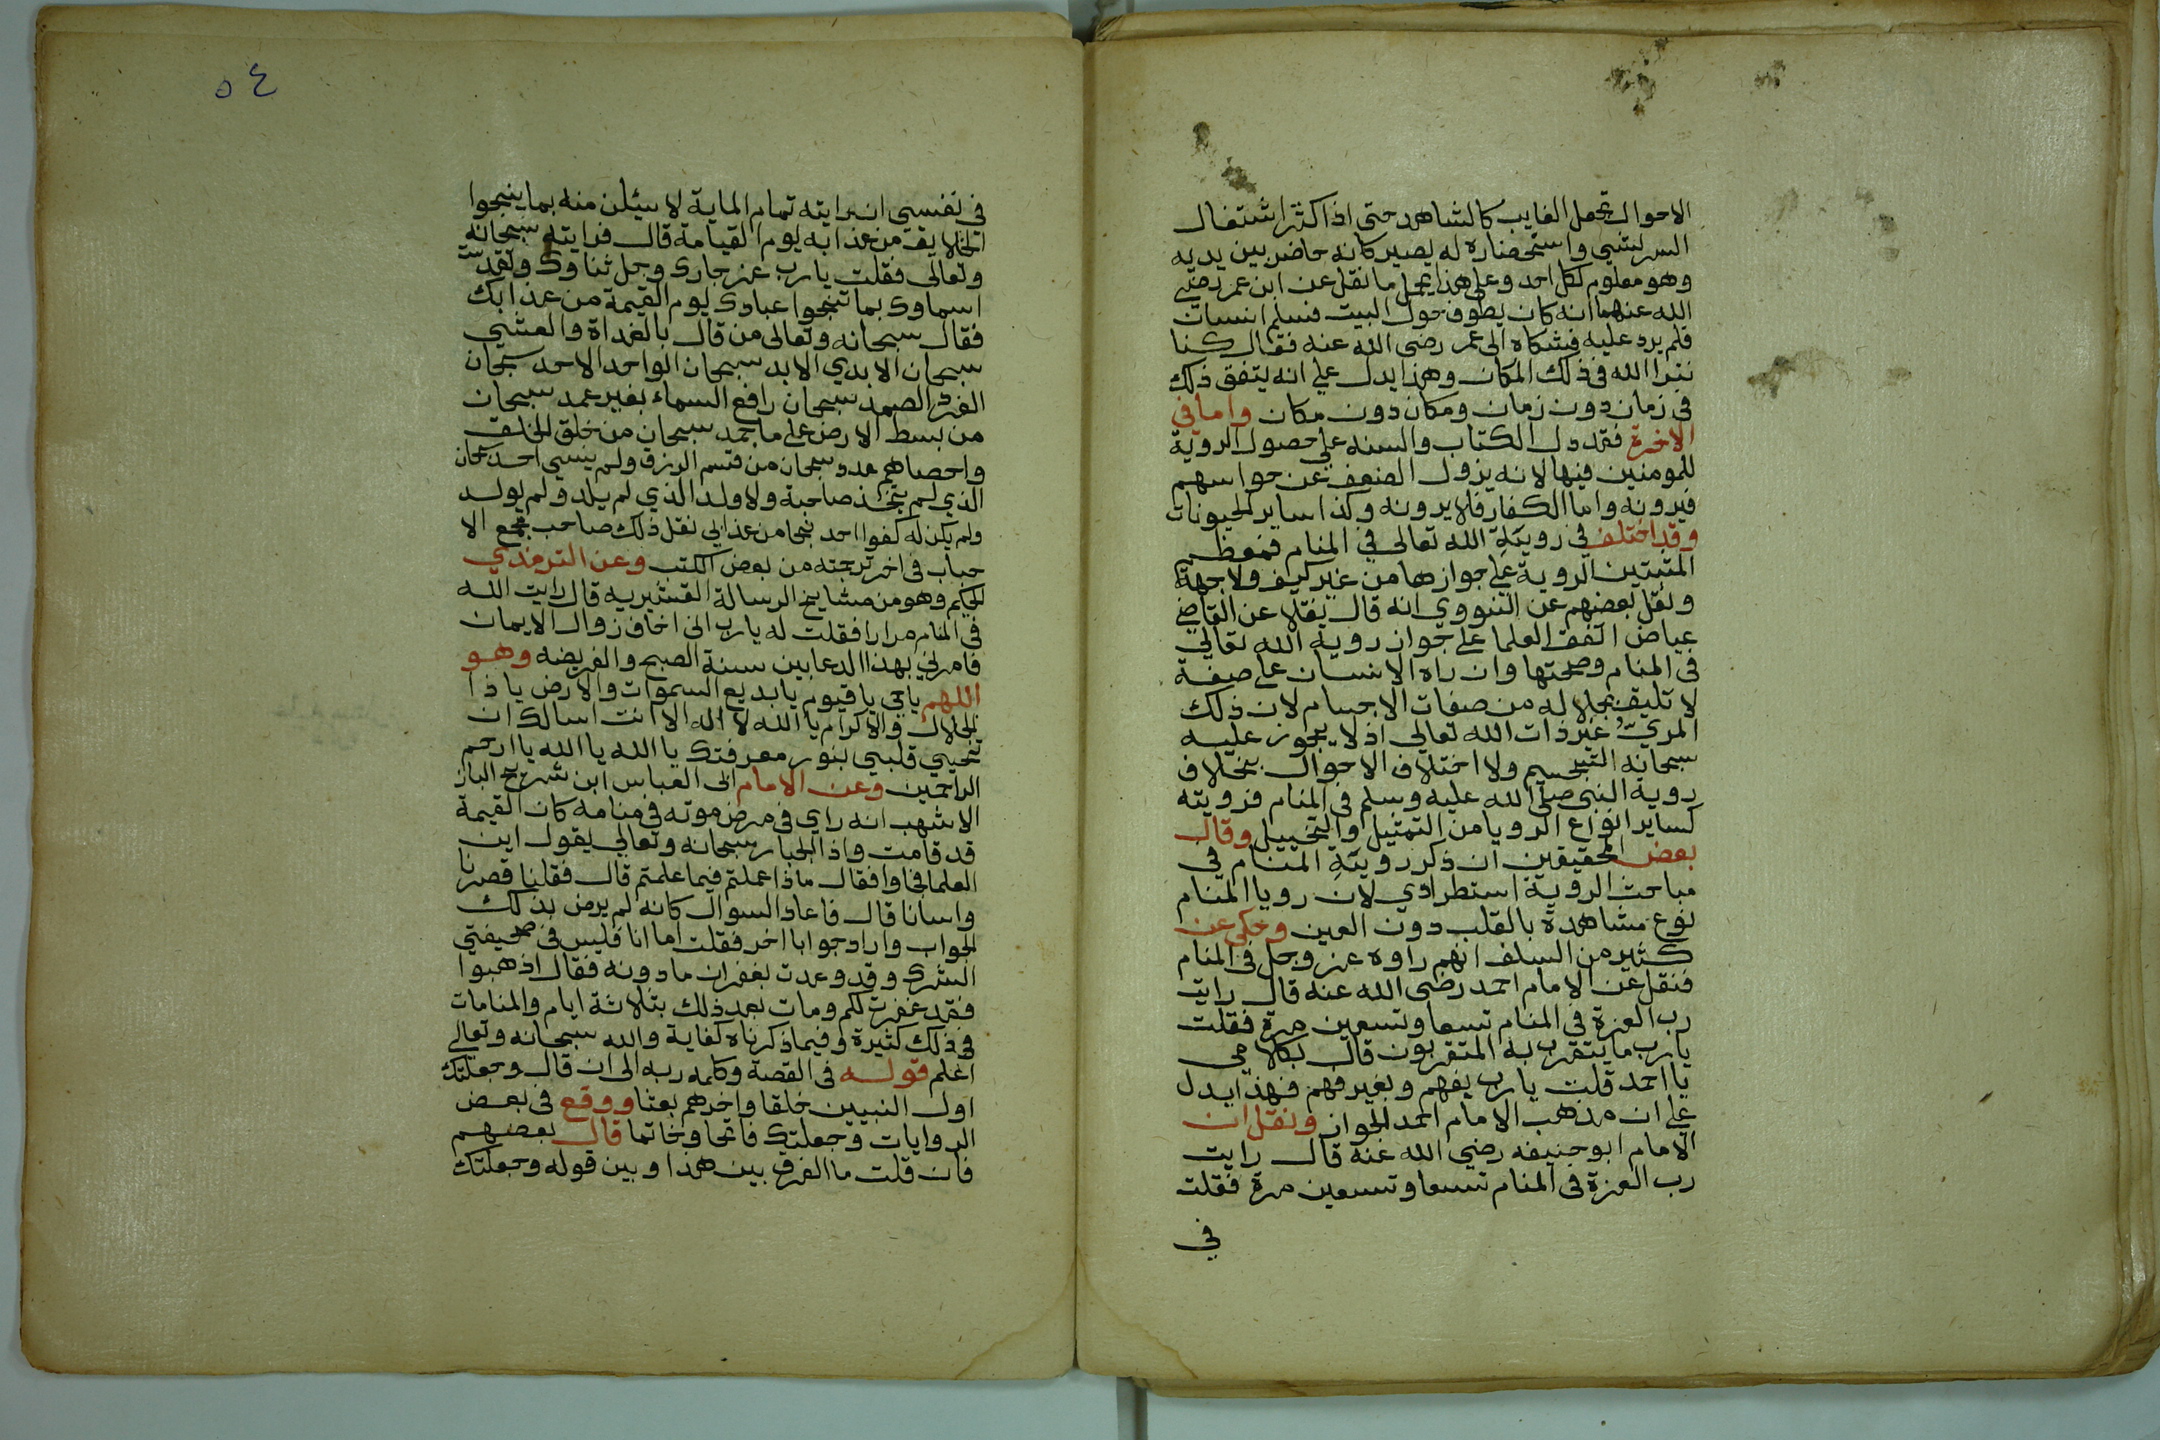 الاحوال تجعل الغايب كالشاهد حتى اذا كثر اشتغال
السر بشي واستحضاره له يصير كانه حاضر بين يديه
وهو معلوم لكل احد وعلى هذا يحمل ما نقل عن ابن عمر رضي
الله عنهما انه كان يطوف حول البيت فسلم انسان
فلم يرد عليه فشكاه الى عمر رضى الله عنه فقال كنا
نترا الله فى ذلك المكان وهذا يدل على انه يتفق ذلك
فى زمان دون زمان ومكان دون مكان واما في
الاخرة فقد دل الكتاب والسنه على حصول الروية
للمومنين فيها لانه يزول الضعف عن حواسهم
فيرونه واما الكفار فلا يرونه وكذا ساير الحيونات
وقد اختلف في روية الله تعالى في المنام فمعظم
المثبتين الروية على جوازها من غير كيف ولا جهة
ونقل بعضهم عن النووي انه قال نقلا عن القاضي
عياض اتفق العلما على جواز روية الله تعالي
فى المنام وصحتها وان راه الانسان على صفة
لا تليق بجلاله من صفات الاجسام لان ذلك
المريّ غير ذات الله تعالى اذ لا يجوز عليه
سبحانه التجسيم ولا اختلاف الاحوال بخلاف
روية النبى صلى الله عليه وسلم فى المنام فرويته
كساير انواع الرويا من التمثيل والتخييل وقال
بعض المحققين ان ذكر روية المنام في
مباحث الروية استطرادي لان رويا المنام
نوع مشاهدة بالقلب دون العين وحكى عن
كثير من السلف انهم راوه عز وجل فى المنام
فنقل عن الامام احمد رضى الله عنه قال رايت
رب العزة في المنام تسعا وتسعين مرة فقلت
يارب ما يتقرب به المتقربون قال بكلامي
يا احمد قلت يارب بفهم وبغير فهم فهذا يدل
على ان مذهب الامام احمد الجواز ونقل ان
الامام ابو حنيفه رضي الله عنه قال رايت
رب العزة فى المنام تسعا وتسعين مرة فقلت
في
٥٤
في نفسي ان رايته تمام الماية لاسيئلن منه بما ينجوا
الخلايق من عذابه يوم القيامة قال فرايته سبحانه
وتعالى فقلت يارب عز جارك وجل ثناوك وتقدست
اسماوك بما تنجوا عبادك يوم القيمة من عذابك
فقال سبحانه وتعالى من قال بالغداة والعشي
سبحان الابدي الابد سبحان الواحد الاحد سبحان
الفرد الصمد سبحان رافع السماء بغير عمد سبحان
من بسط الارض على ما جمد سبحان من خلق الخلق
واحصاهم عدد سبحان من قسم الرزق ولم ينسي احد سبحان
الذي لم يتخذ صاحبة ولا ولد الذي لم يلد ولم يولد
ولم يكن له كفوا احد نجا من عذابي نقل ذلك صاحب مجمع الا
حباب فى اخر ترجته من بعض الكتب وعن الترمذي
الحكيم وهو من مشايخ الرسالة القشيريه قال رايت الله
في المنام مرارا فقلت له يارب انى اخاف زوال الايمان
فامرني بهذا الدعا بين سنة الصبح والفريضه وهو
اللهم ياحي يا قيوم يا بديع السموات والارض يا ذا
الجلال والاكرام يا الله لا اله الا انت اسالك ان
تحيي قلبي بنور معرفتك يا الله يا الله يا ارحم
الراحمين وعن الامام ابى العباس ابن شريح الباز
الاشهب انه راي فى مرض موته فى منامه كان القيمة
قد قامت واذا الجبار سبحانه وتعالي يقول اين
العلما فجاوا فقال ماذا عملتم فيما علمتم قال فقلنا قصرنا
واسانا قال فاعاد السوال كانه لم يرض بذلك
الجواب واراد جوابا اخر فقلت اما انا فليس فى صحيفتي
الشرك وقد وعدت بغفران ما دونه فقال اذهبوا
فقد غفرت لكم ومات بعد ذلك بثلاثة ايام والمنامات
فى ذلك كثيرة وفيما ذكرناه كفاية والله سبحانه وتعالي
اعلم قوله فى القصة وكلمه ربه الى ان قال وجعلتك
اول النبيين خلقا واخرهم بعثا ووقع فى بعض
الروايات وجعلتك فاتحا وخاتما قال بعضهم
فان قلت ما الفرق بين هذا وبين قوله وجعلتك